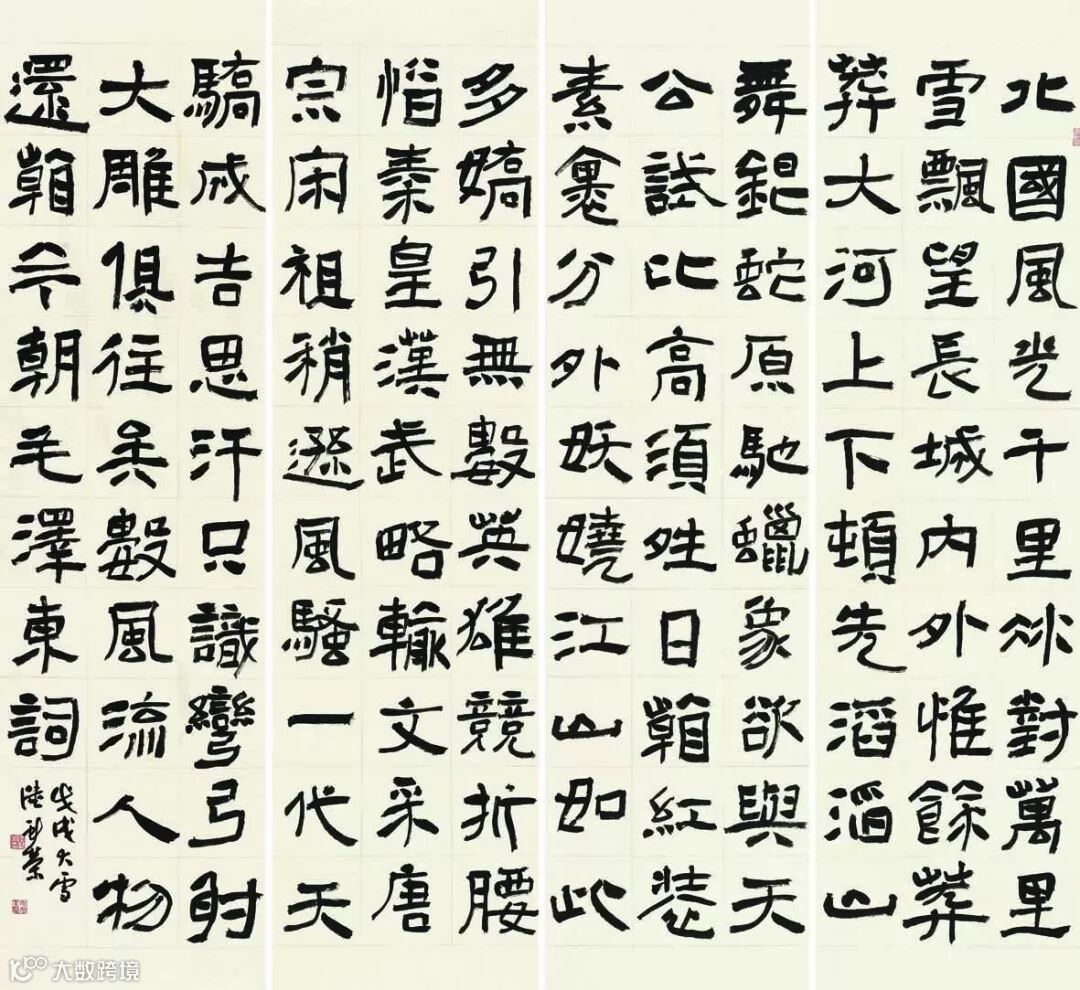 北國風光千里冰封萬里
雪飄望長城內外惟餘莽
莽大河上下頓失滔滔山
舞銀蛇原馳蠟象欲與天
公試比高須晴日看紅裝
素裹分外妖嬈江山如此
多嬌引無數英雄競折腰
惜秦皇漢武略輸文采唐
宗宋祖稍遜風騷一代天
驕成吉思汗只識彎弓射
大雕俱往矣數風流人物
還看今朝毛澤東詞
戊戌大雪
大数跨境